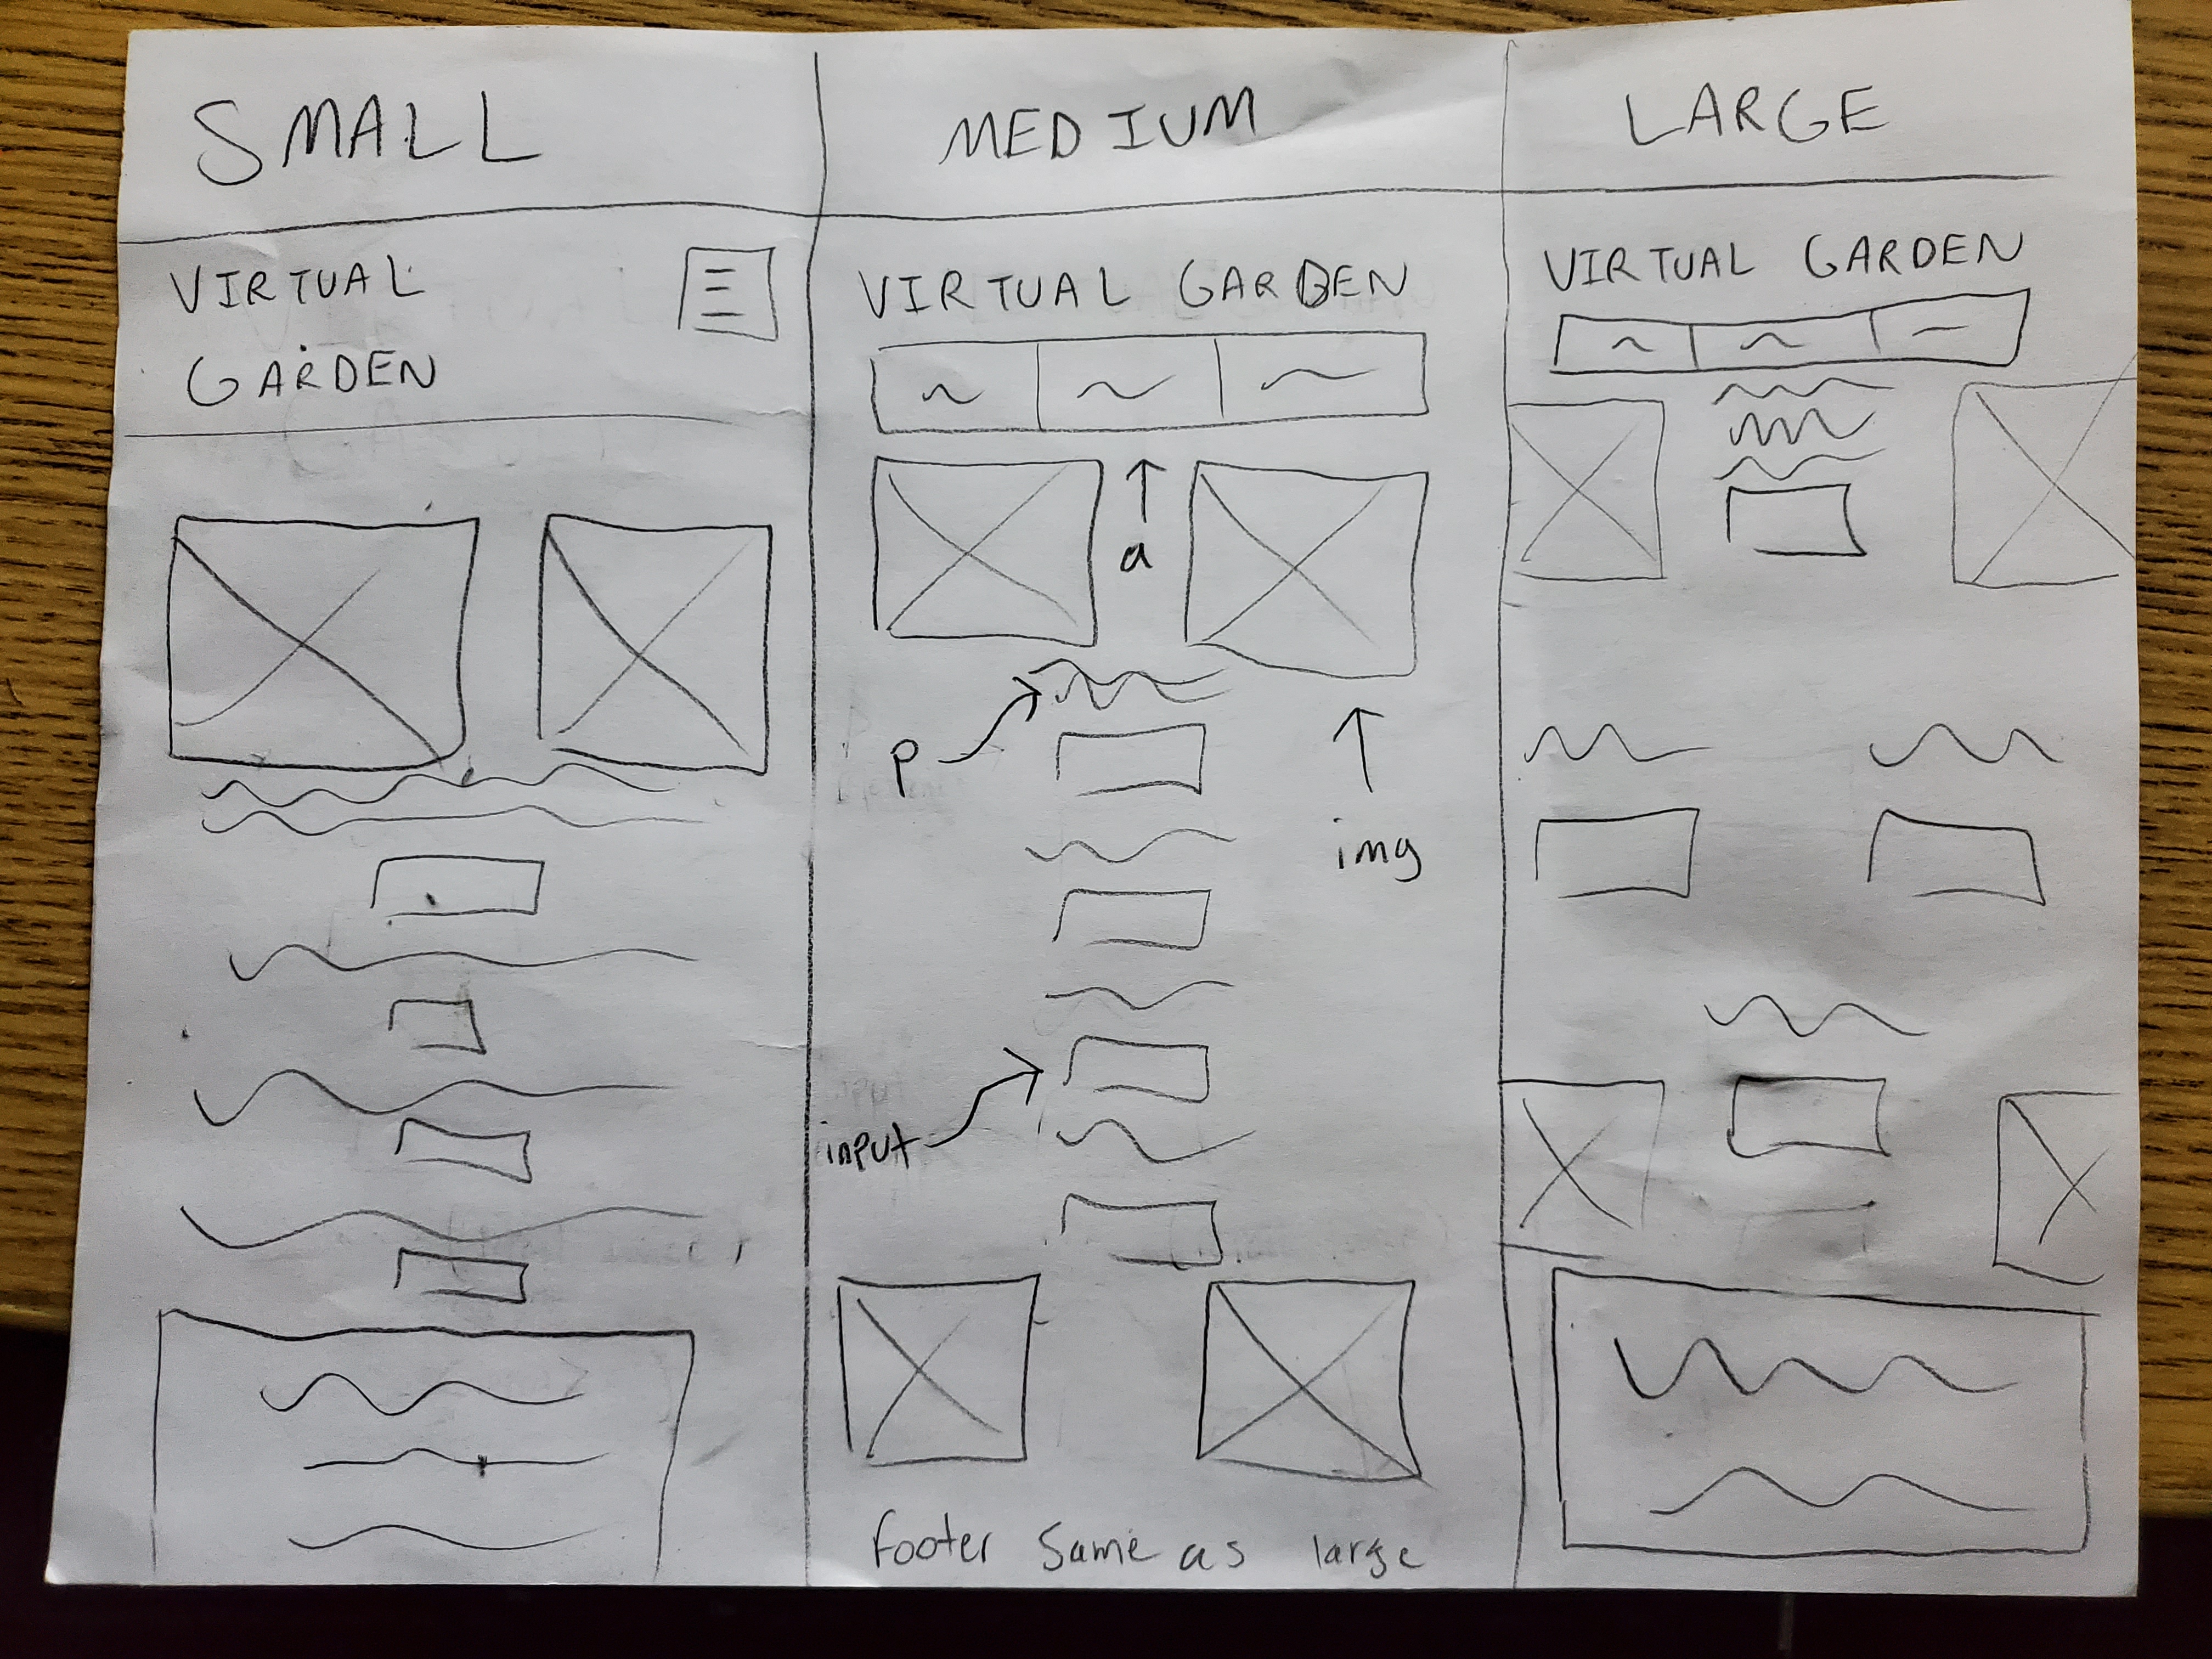 SMALL
VIRTUAL
GARDEN
MEDIUM
VIRTUAL GARDEN
a
p
img
input
footer same as large
LARGE
VIRTUAL GARDEN